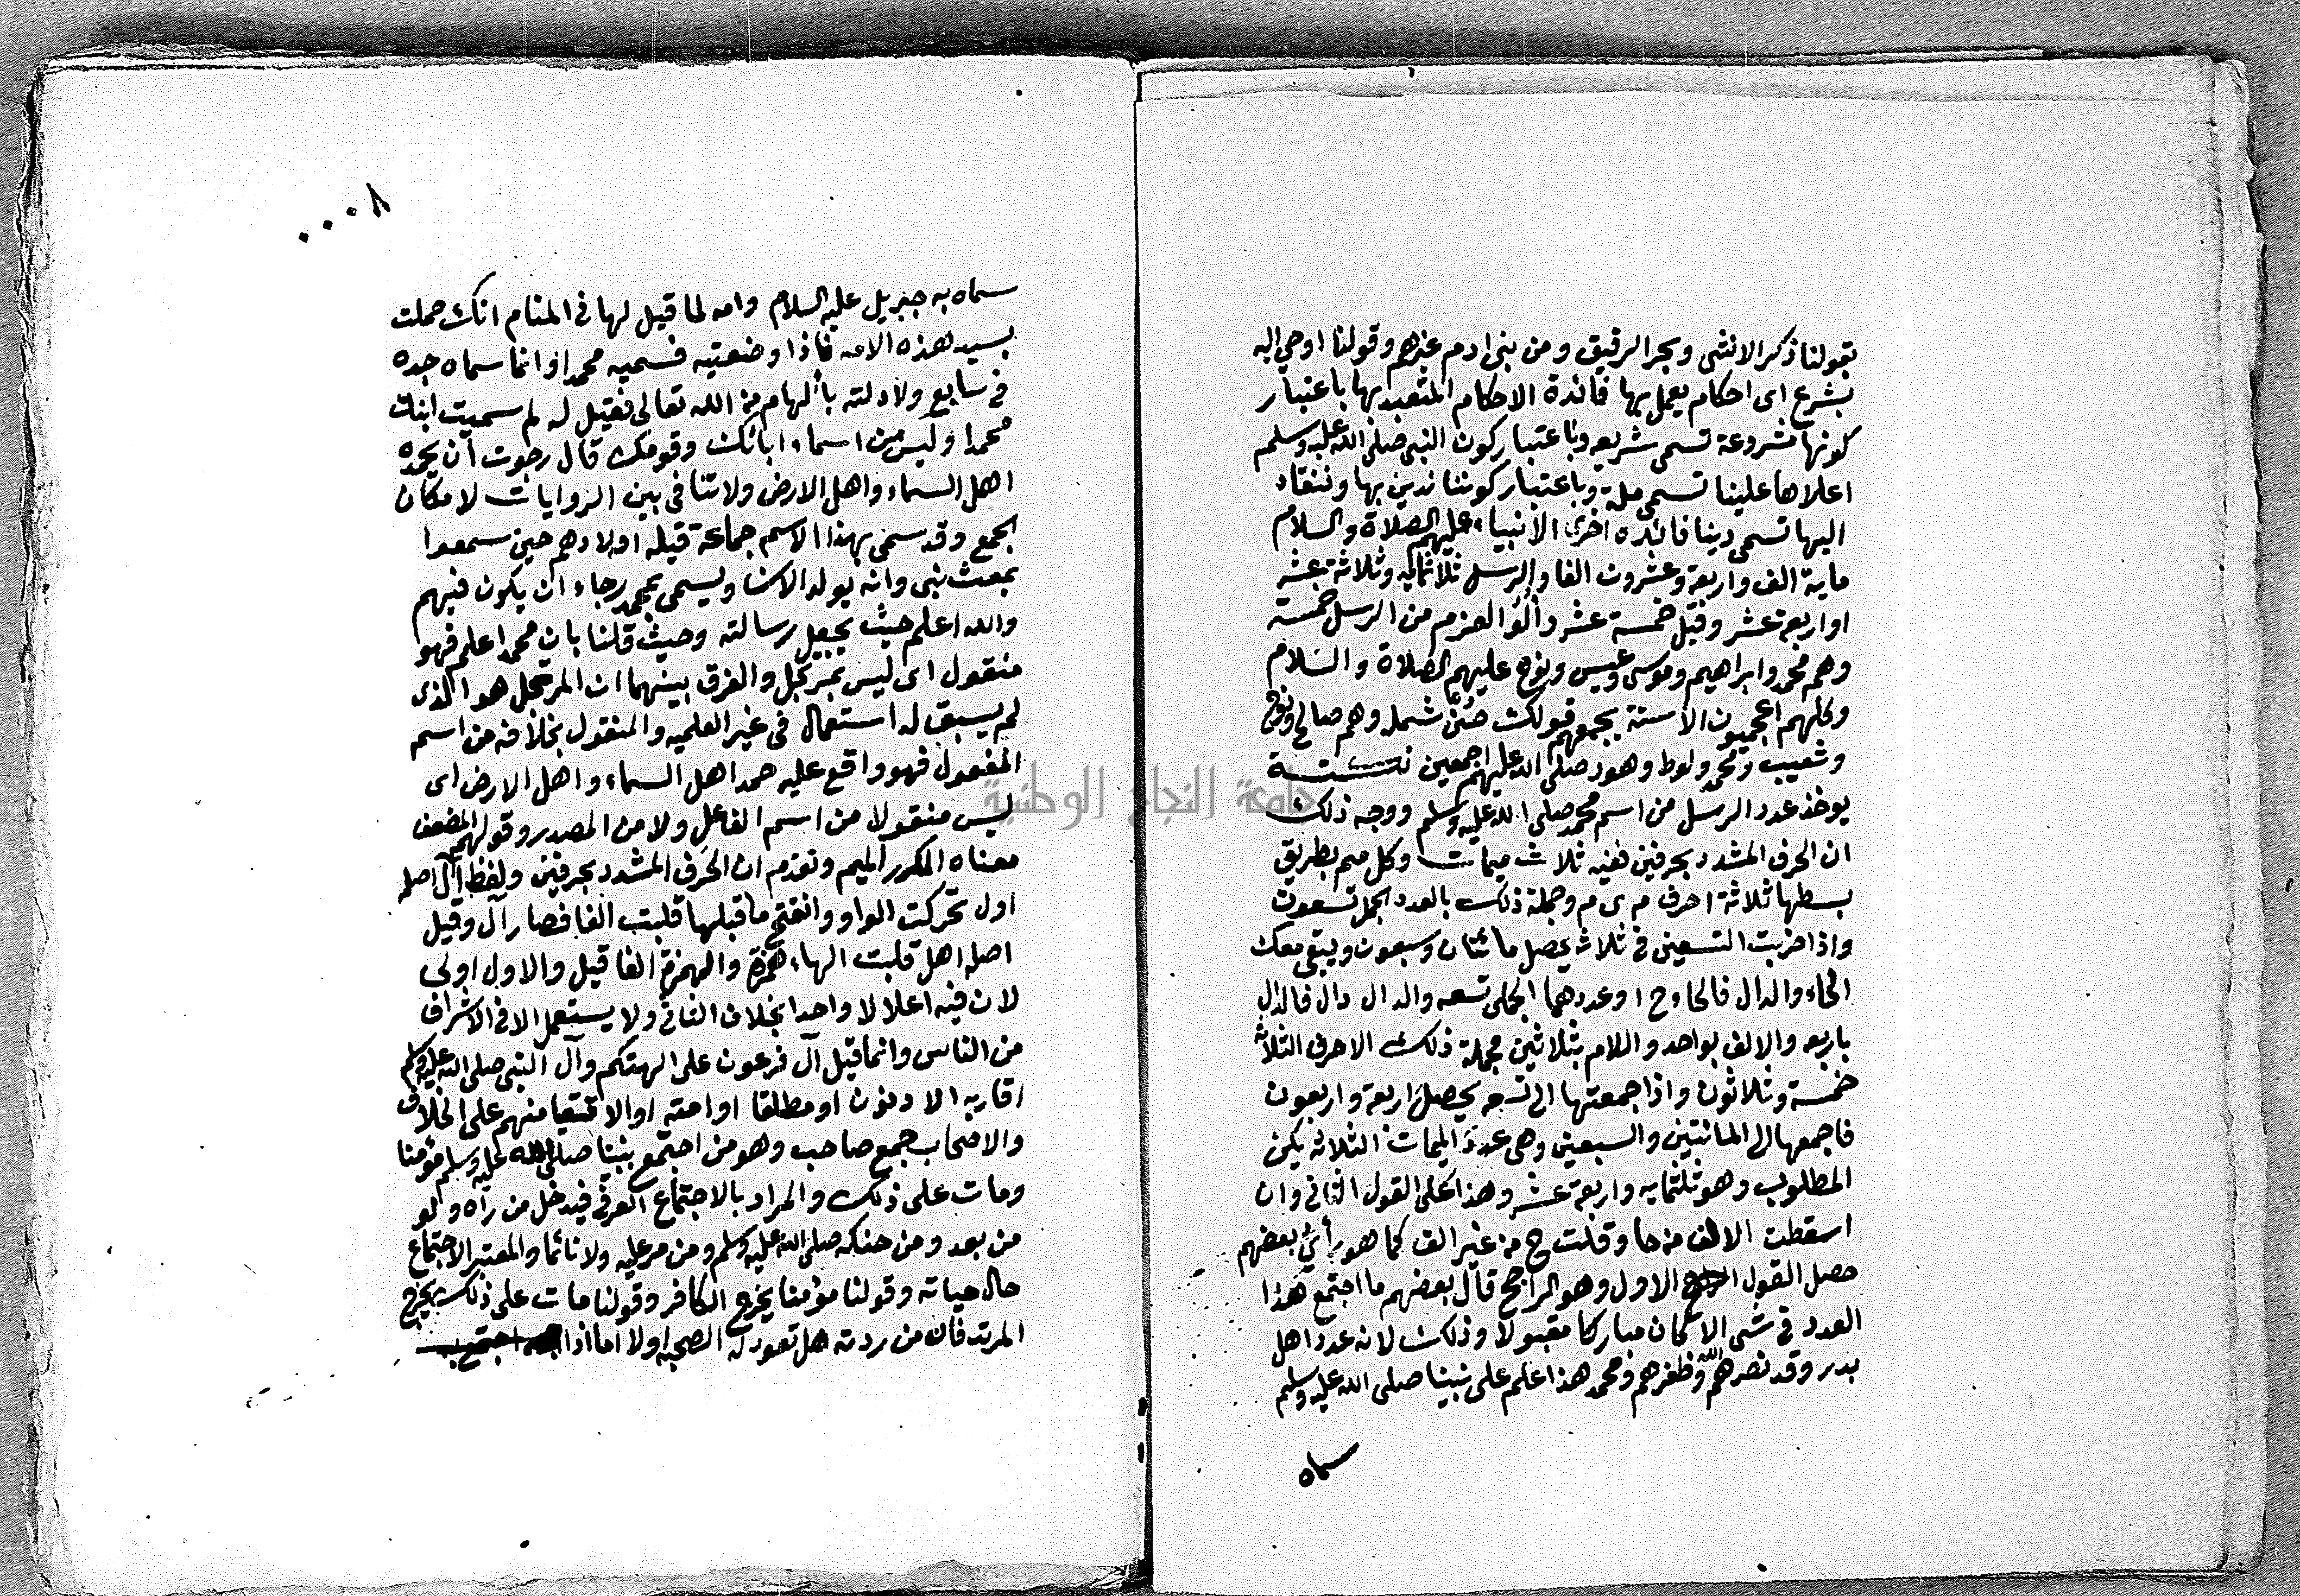 بقولنا ذكر الانثى وبحر الرقيق ومن بنى ادم غيرهم وقولنا اوحي اليه
بشرع اى احكام يعمل بها فائدة الاحكام المتعبد بها باعتبار
كونها مشروعة تسمى شريعه وباعتبار كون النبى صلى الله عليه وسلم
اعلاها علينا تسمى ملة وباعتبار كوننا ندين بها وننقاد
اليها تسمى دينا فائده اخرى الانبياء عليهم الصلاة والسلام
ماية الف واربعة وعشرون الفا والرسل ثلاثمايه وثلاثة عشر
او اربعة عشر وقيل خمسة عشر وألو العزم من الرسل خمسة
وهم محمد وابراهيم وموسى وعيسى ونوح عليهم الصلاة والسلام
وكلهم اعجميون الا ستة يجمعهم قولك صن شمله وهم صالح ونوح
وشعيب ومحمد ولوط وهود صلى الله عليهم اجمعين
يوخذ عدد الرسل من اسم محمد صلى الله عليه وسلم ووجه ذلك
ان الحرف المشدد بحرفين ففيه ثلاث ميمات وكل ميم بطريق
بسطها ثلاثة احرف م ى م وجملة ذلك بالعدد الجمل تسعون
واذا ضربت التسعين فى ثلاثه يحصل مائتان وسبعون ويبقى معك
الحاء والدال فالحاء ح ا وعددهما الجملى تسعه والدال دال فالدال
باربعه والالف بواحد واللام بثلاثين فجملة ذلك الاحرف الثلاثه
خمسة وثلاثون واذا جمعتها الى تسعه يحصل اربعة واربعون
فاجمعها الى المائتين والسبعين وهى عدد الميمات الثلاثه يكن
المطلوب وهو ثلثمايه واربعة عشر وهذا على القول الثانى وان
اسقطت الالف من حا وقلت ح من غير الف كما هو رأي بعضهم
حصل القول الاول وهو الراجح قال بعضهم ما اجتمع هذا
العدد فى شى الا كان مباركا مقبولا وذلك لانه عدد اهل
بدر وقد نصرهم الله وظفرهم ومحمد هذا علم على نبينا صلى الله عليه وسلم
سماه
٠٠٠٨
سماه به جبريل عليه السلام وامه لما قيل لها فى المنام انك حملت
بسيد هذه الامه فاذا وضعتيه فسميه محمدا وانما سماه جده
فى سابع ولادته بألهام من الله تعالى فقيل له لم سميت ابنك
محمدا وليس من اسماء ابائك وقومك قال رجوت أن يحمده
اهل السماء واهل الارض ولا تنافى بين الروايات لامكان
الجمع وقد سمى بهذا الاسم جماعة قبله اولادهم حين سمعوا
بمعث نبى وانه يولد الان ويسمى بمحمد رجاء ان يكون فيهم
والله اعلم حيث يجعل رسالته وحيث قلنا بان محمدا علم فهو
منقول اى ليس بمرتجل والفرق بينهما ان المرتجل هو الذى
لم يسبق له استعمال فى غير العلميه والمنقول بخلافه من اسم
المفعول فهو واقع عليه حمد اهل السماء واهل الارض اى
ليس منقولا من اسم الفاعل ولا من المصدر وقولهم المضعف
معناه المكرر الميم وتقدم ان الحرف المشدد بحرفين ولفظ آل اصله
اول تحركت الواو وانفتح ما قبلها قلبت الفا فصار آل وقيل
اصله اهل قلبت الهاء همزة والهمزة الفا قيل والاول اولى
لان فيه اعلالا واحدا بخلاف الثانى ولا يستعمل الا فى الاشراف
من الناس وانما قيل آل فرعون على الهتكم وآل النبى صلى الله عليه وسلم
اقاربه الادنون او مطلقا او امته او الاتقيا منهم على الخلاف
والاصحاب جمع صاحب وهو من اجتمع بنبينا صلى الله عليه وسلم مؤمنا
ومات على ذلك والمراد بالاجتماع العرفي فيدخل من رآه ولو
من بعد ومن حنكه صلى الله عليه وسلم ومن مر عليه ولا نائما والمعتبر الاجتماع
حال حياته وقولنا مؤمنا يخرج الكافر وقولنا مات على ذلك يخرج
المرتد فان من ردته هل تعود له الصحبه اولا اما اذا اجتمع به
جامعة النجاح الوطنية